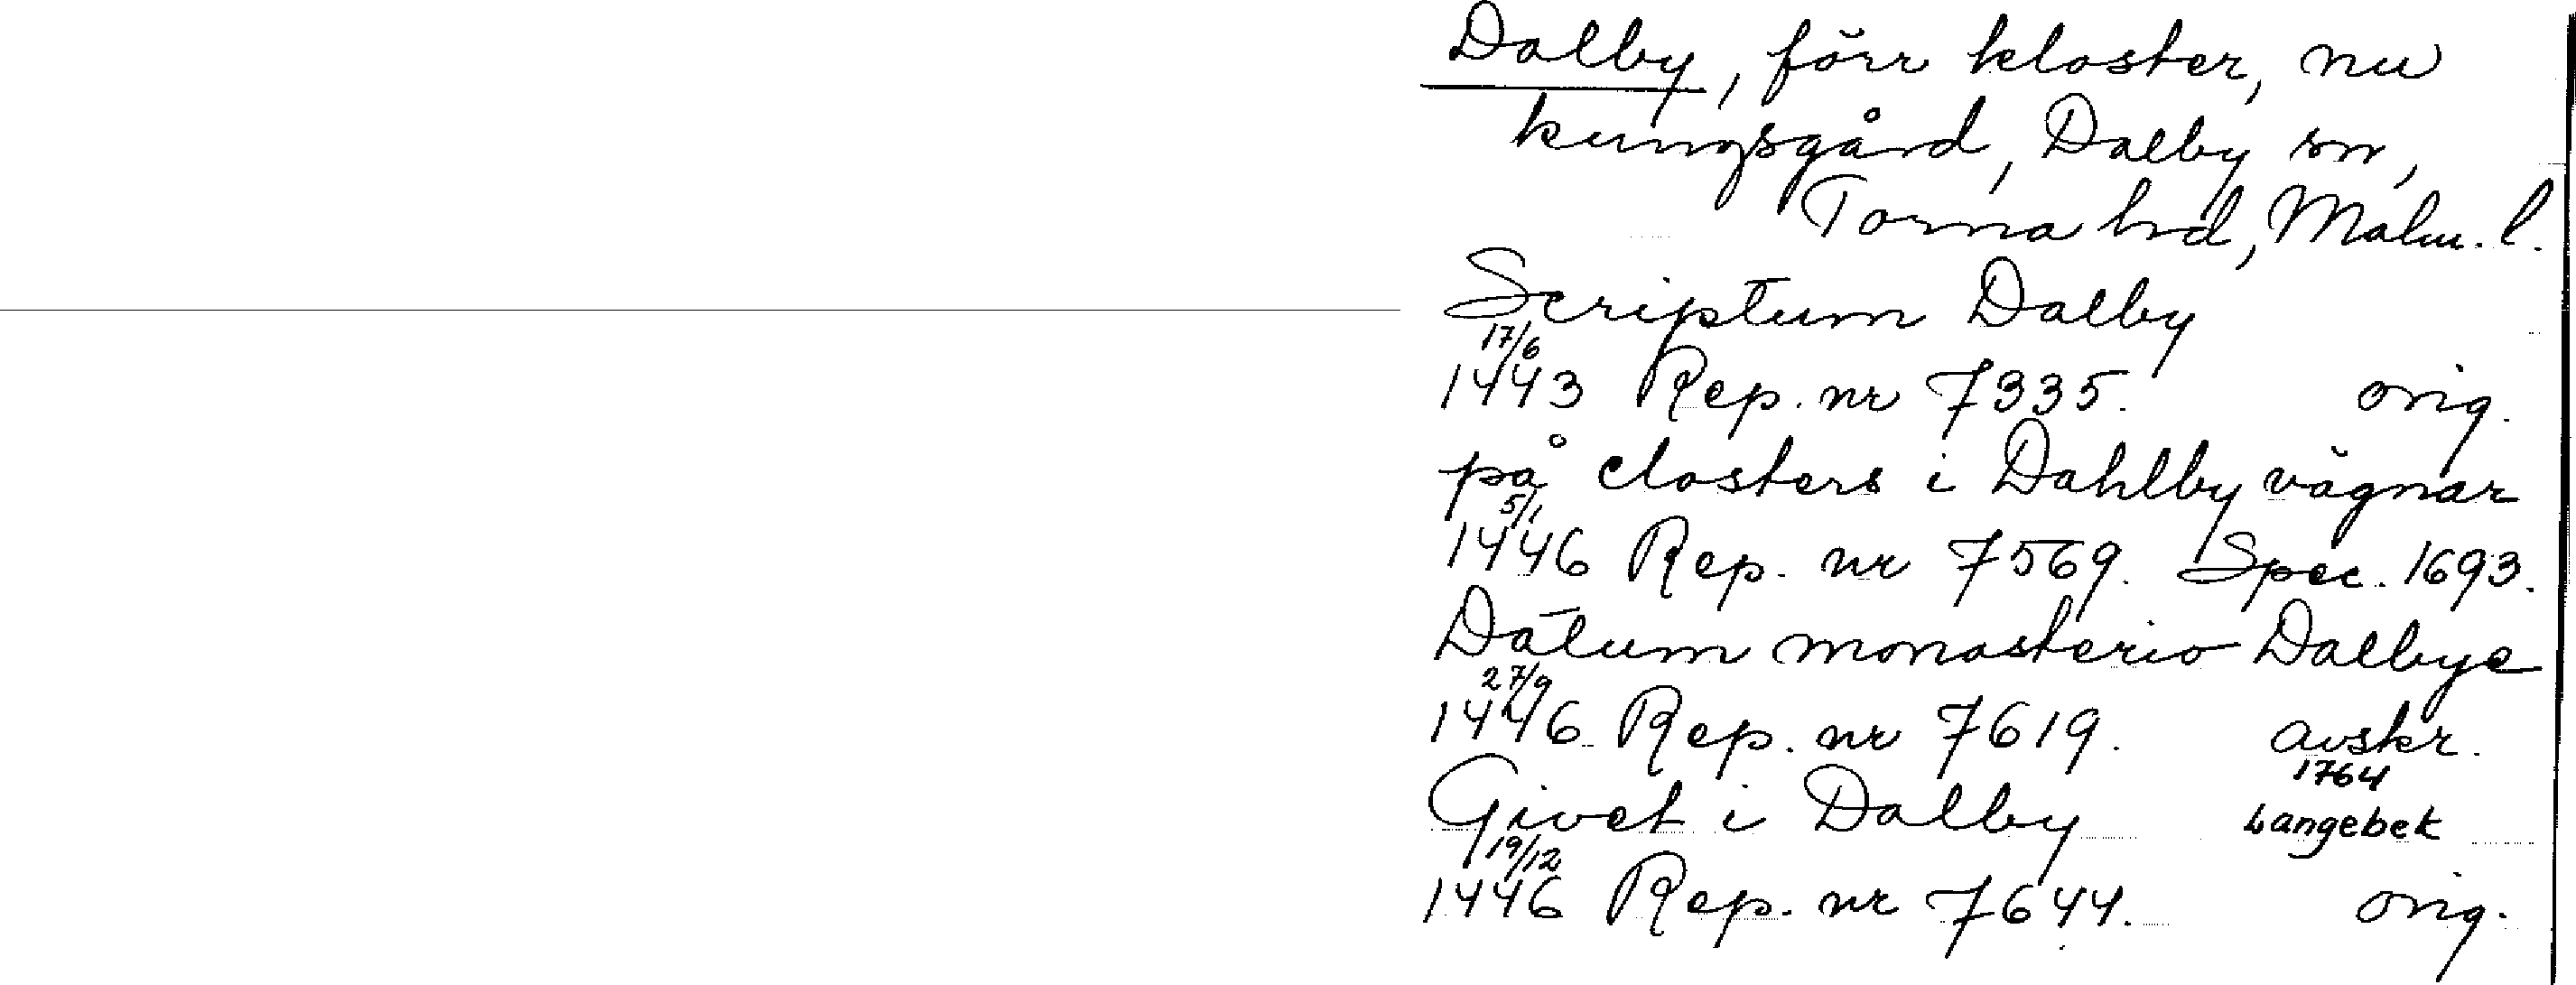 Dalby, förr kloster, nu
kungsgård, Dalby sn,
Torna hd, Malm. l.
Scriptum Dalby
17/6
1443 Rep. nr 7335. orig.
på closters i Dahlby vägnar
5/1
1446 Rep. nr 7569. Spec. 1693.
Datum monasterio Dalbye
27/9
1446 Rep. nr 7619. avskr.
1764
Givet i Dalby Langebek
19/12
1446 Rep. nr 7644. orig.